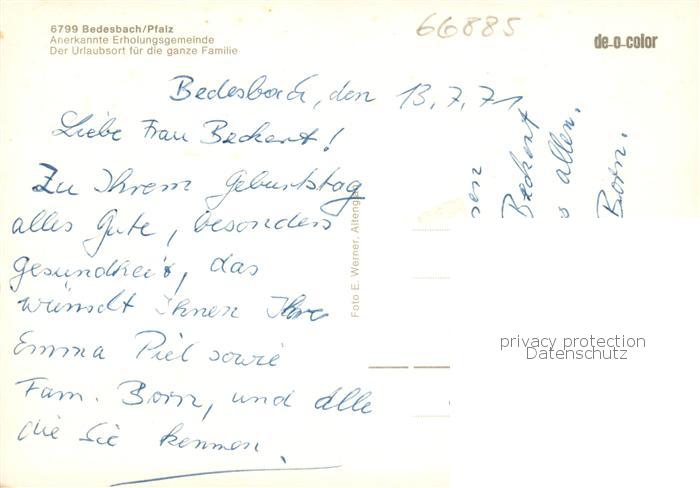 6799 Bedesbach/Pfalz
Anerkannte Erholungsgemeinde
Der Urlaubsort für die ganze Familie
66885
de-o-color
Bedesbach, den 13.7.71
Liebe Frau Beckert!
Zu Ihrem Geburtstag
alles Gute, besonders
Gesundheit, das
wünscht Ihnen Ihre
Emma Piel sowie
Fam. Born, und Alle
die Sie kennen.
Foto E. Werner, Alteng
Beckert
s allen.
Born.
privacy protection
Datenschutz